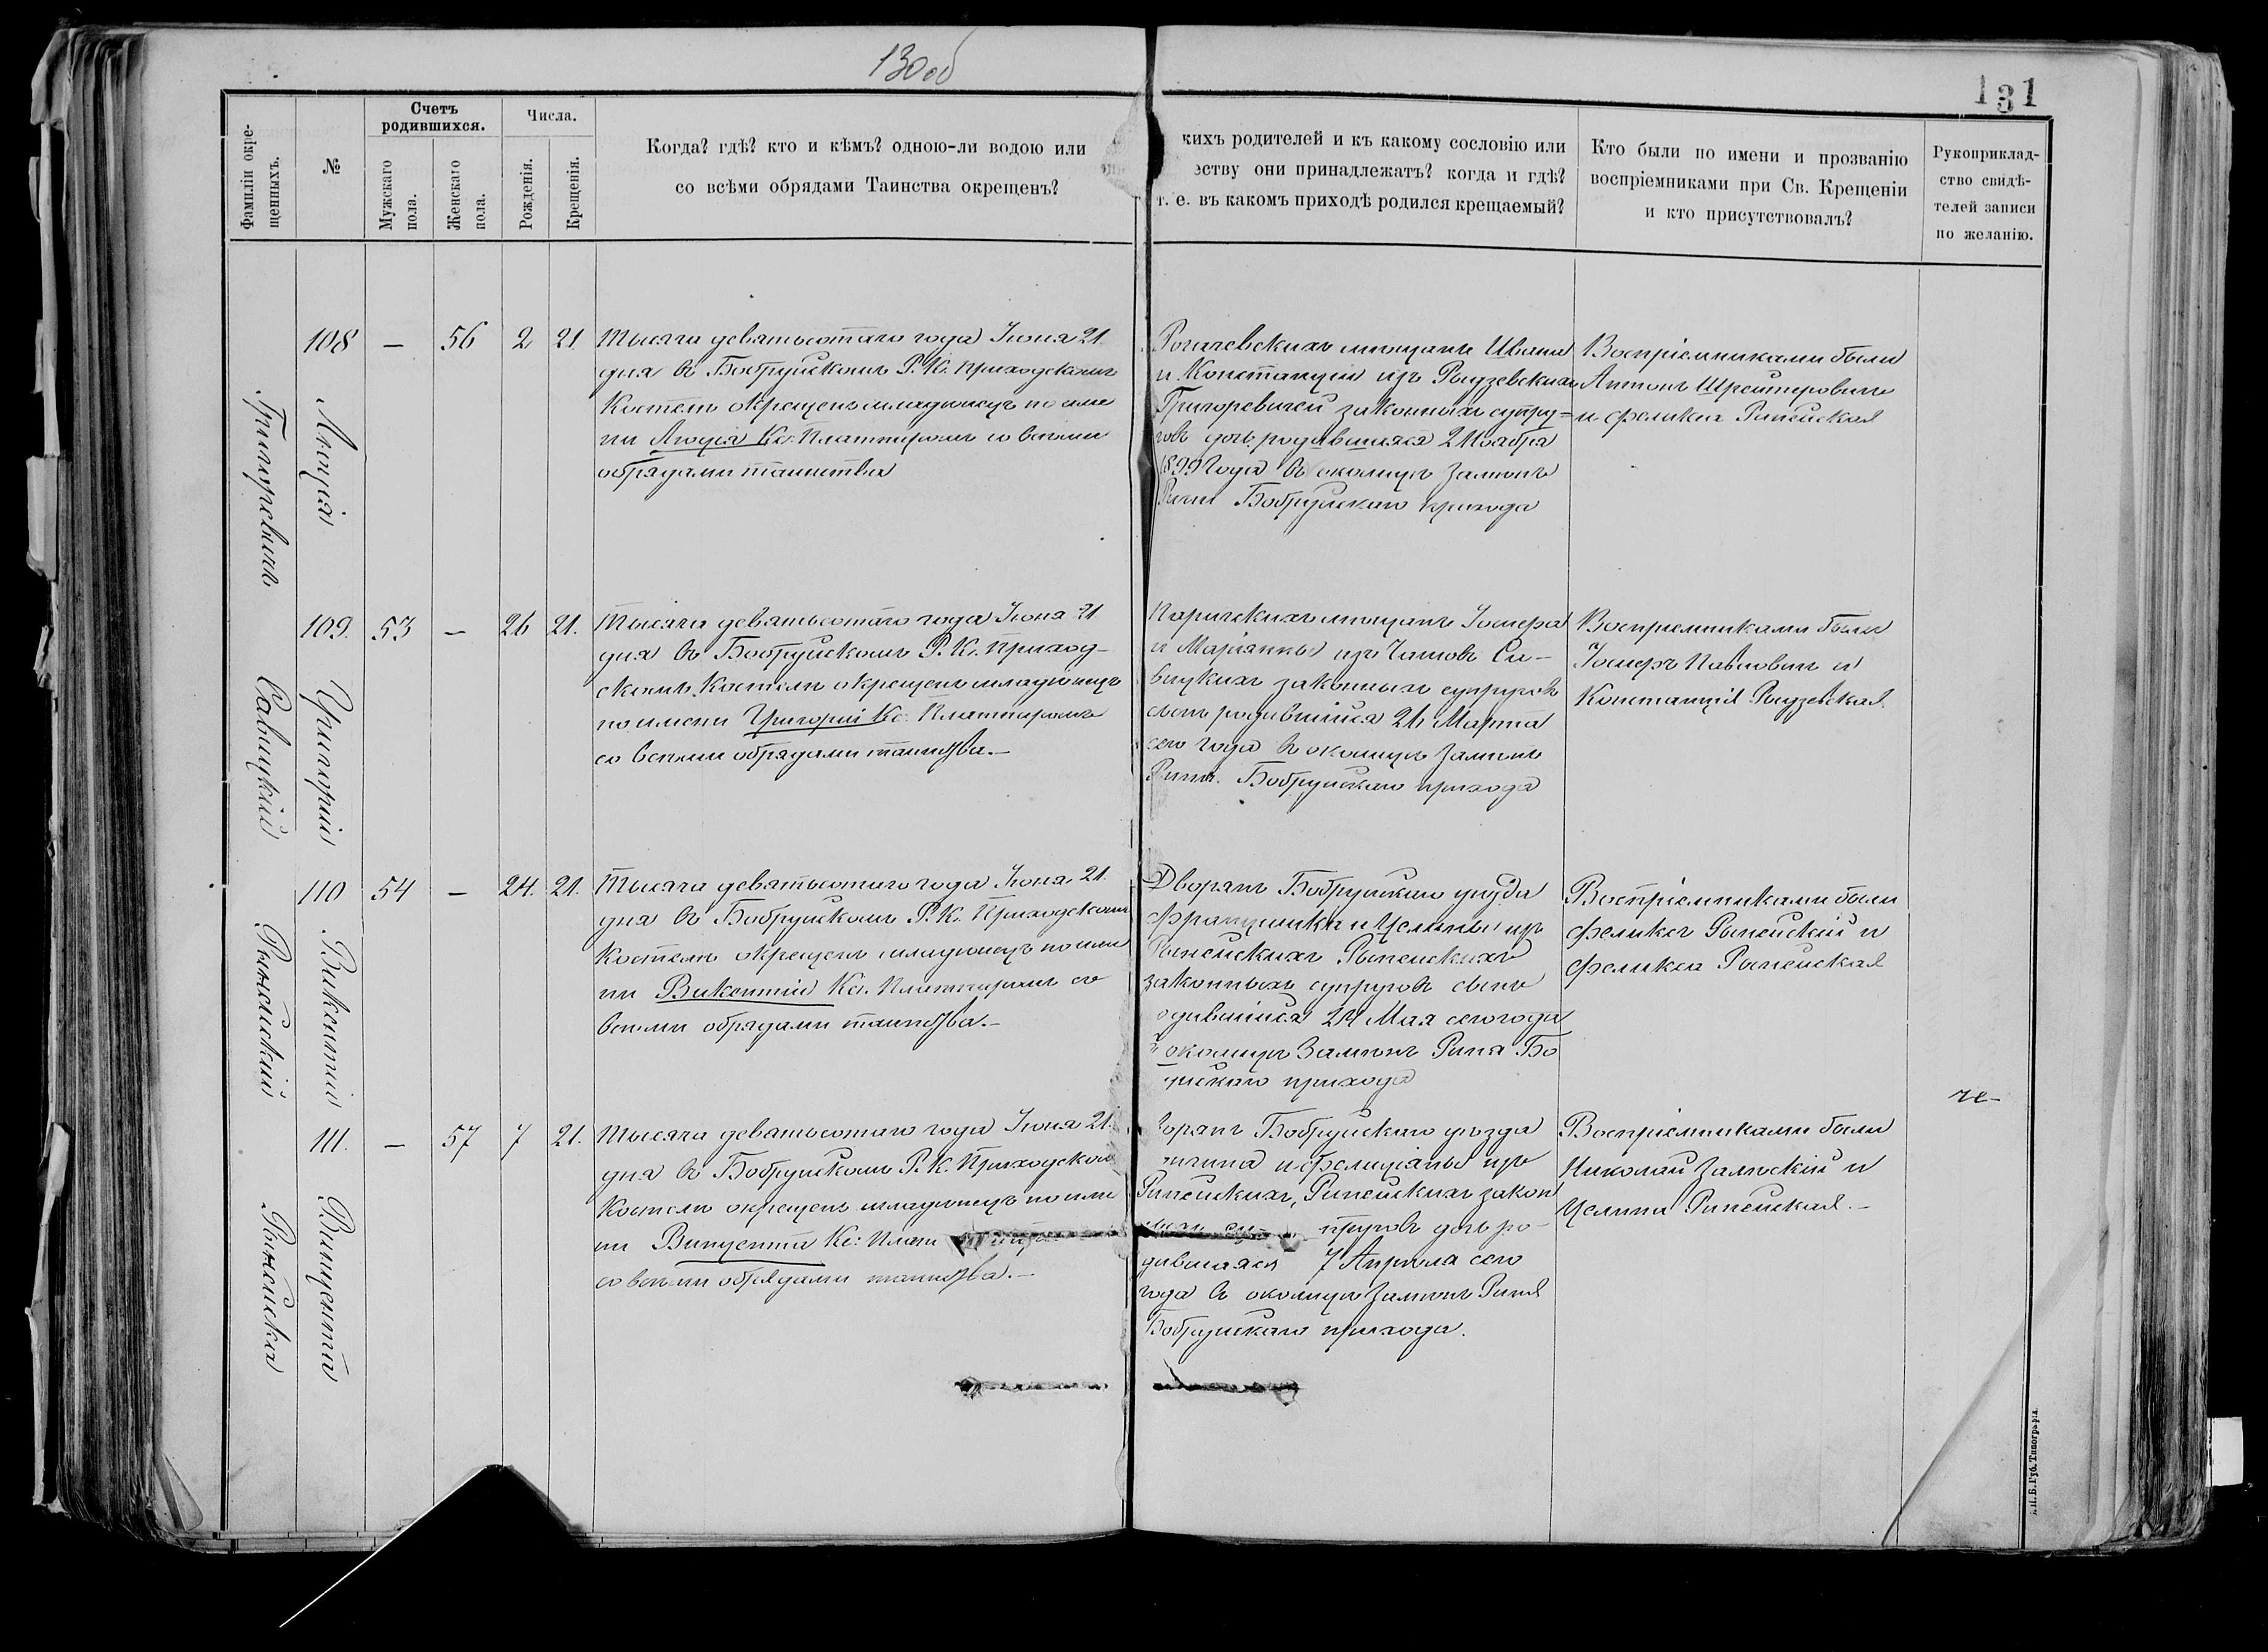 130 об
131
Фамиліи окре-
щенныхъ.
№
Счетъ
родившихся.
Мужскаго
пола.
Женскаго
пола.
Числа.
Рожденія.
Крещенія.
Когда? гдѣ? кто и кѣмъ? одною-ли водою или
со всѣми обрядами Таинства окрещенъ?
кихъ родителей и къ какому сословію или
еству они принадлежатъ? когда и гдѣ?
т. е. въ какомъ приходѣ родился крещаемый?
Кто были по имени и прозванію
воспріемниками при Св. Крещеніи
и кто присутствовалъ?
Рукоприклад-
ство свидѣ-
телей записи
по желанію.
Григоревичъ
Люція
108 — 56 2 21
Тысяча девятьсотаго года Іюня 21
дня въ Бобруйскомъ Р. К. Приходскомъ
Костелѣ окрещенъ младенецъ по име
ни Люція Кс. Платпиромъ со всѣми
обрядами таинства
Рогачевскихъ мѣщанъ Ивана
и Констанціи изъ Рыдзевскихъ
Григоревичей законныхъ супру=
говъ дочь родившаяся 2 Ноября
1899 года въ околицѣ Замкнѣ
Рыни Бобруйскаго прихода
Воспріемниками были
Антонъ
и Фелика Рыпейская
Савицкій
Григорій
109. 53 — 26 21.
Тысяча девятьсотаго года Іюня 21
дня въ Бобруйскомъ Р. К. Приход-
скомъ Костелѣ окрещенъ младенецъ
по имени Григорій Кс. Платпиромъ
со всѣми обрядами таинства.—
Паричскихъ мѣщанъ Іосифа
и Маріанны изъ Са-
вицкихъ законныхъ супруговъ
сынъ родившійся 26 Марта
сего года въ околицѣ
Бобруйскаго прихода
Воспріемниками были
Іосифъ Павловичъ и
Констанція Рыдзевская.
Рыпейскій
Викентій
110 54 — 24. 21.
Тысяча девятьсотаго года Іюня 21.
дня въ Бобруйскомъ Р. К. Приходскомъ
Костелѣ окрещенъ младенецъ по име
ни Викентій Кс. Платпиромъ со
всѣми обрядами таинства.—
Дворянъ Бобруйскаго уѣзда
Францишка и Целины изъ
Рыпейскихъ Рыпейскихъ
законныхъ супруговъ сынъ
одившійся 24 Мая сего года
околицѣ Замкнѣ Рыня Бо
уйскаго прихода
Воспріемниками были
Феликсъ Рыпейскій и
Фелика Рыпейская
Рыпейска
Винцента
111. — 57 7 21.
Тысяча девятьсотаго года Іюня 21.
дня въ Бобруйскомъ Р. К. Приходском
Костелѣ окрещенъ младенецъ по име
ни Винцента Кс: Плат
со всѣми обрядами таинства.—
орянъ Бобруйскаго уѣзда
и Фелиціаны изъ
Рипейскихъ, Рипейскихъ закон
пруговъ дочь ро-
дившаяся 7 Апрѣля сего
года въ околицѣ Замкнѣ Рыня
Бобруйскаго прихода.
Воспріемниками были
Николай Залѣскій и
Целина Рипейская.—
А.И.Б. Губ. Типографія.